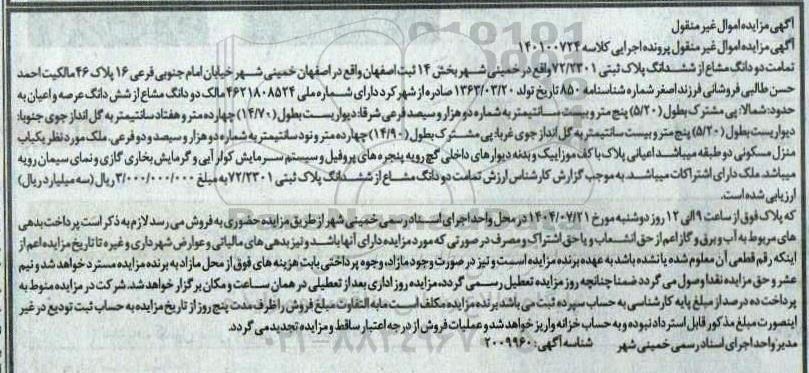 آگهی مزایده اموال غیر منقول
آگهی مزایده اموال غیر منقول پرونده اجرایی کلاسه ۱۴۰۱۰۰۷۲۴
تمامت دو دانگ مشاع از ششدانگ پلاک ثبتی ۷۲/۲۳۰۱ واقع در خمینی شهر بخش ۱۴ ثبت اصفهان واقع در اصفهان خمینی شهر خیابان امام جنوبی فرعی ۱۶ پلاک ۴۶ مالکیت احمد
حسن طالبی فروشانی فرزند اصغر شماره شناسنامه ۸۵۰ تاریخ تولد ۱۳۶۳/۰۳/۲۰ صادره از شهرکرد دارای شماره ملی ۴۶۲۱۸۰۸۵۲۴ مالک دو دانگ مشاع از شش دانگ عرصه و اعیان به
حدود: شمالا: پی مشترک بطول (۵/۲۰) پنج متر و بیست سانتیمتر به شماره دو هزار و سیصد فرعی شرقا: دیواریست بطول (۱۴/۷۰) چهارده متر و هفتاد سانتیمتر به گل انداز جوی جنوبا:
دیواریست بطول (۵/۲۰) پنج متر و بیست سانتیمتر به گل انداز جوی غربا: پی مشترک بطول (۱۴/۹۰) چهارده متر و نود سانتیمتر به شماره دو هزار و سیصد و دو فرعی. ملک مورد نظر یکباب
منزل مسکونی دو طبقه میباشد اعیانی پلاک با کف موزاییک و بدنه دیوارهای داخلی گچ رویه پنجره های پروفیل و سیستم سرمایش کولر آبی و گرمایش بخاری گازی و نمای سیمان رویه
میباشد. ملک دارای اشتراکات میباشد. به موجب گزارش کارشناس ارزش تمامت دو دانگ مشاع از ششدانگ پلاک ثبتی ۷۲/۲۳۰۱ به مبلغ ۳/۰۰۰/۰۰۰/۰۰۰ ریال (سه میلیارد ریال)
ارزیابی شده است.
که پلاک فوق از ساعت ۹ الی ۱۲ روز دوشنبه مورخ ۱۴۰۴/۰۷/۲۱ در محل واحد اجرای اسناد رسمی خمینی شهر از طریق مزایده حضوری به فروش می رسد لازم به ذکر است پرداخت بدهی
های مربوط به آب و برق و گاز اعم از حق انشعاب و یا حق اشتراک و مصرف در صورتی که مورد مزایده دارای آنها باشد و نیز بدهی های مالیاتی و عوارض شهرداری و غیره تا تاریخ مزایده اعم از
اینکه رقم قطعی آن معلوم شده یا نشده باشد به عهده برنده مزایده است و نیز در صورت وجود مازاد، وجوه پرداختی بابت هزینه های فوق از محل مازاد به برنده مزایده مسترد خواهد شد و نیم
عشر و حق مزایده نقدا وصول می گردد ضمنا چنانچه روز مزایده تعطیل رسمی گردد، مزایده روز اداری بعد از تعطیلی در همان ساعت و مکان برگزار خواهد شد. شرکت در مزایده منوط به
پرداخت ده درصد از مبلغ پایه کارشناسی به حساب سپرده ثبت می باشد برنده مزایده مکلف است مابه التفاوت مبلغ فروش را ظرف مدت پنج روز از تاریخ مزایده به حساب ثبت تودیع در غیر
اینصورت مبلغ مذکور قابل استرداد نبوده و به حساب خزانه واریز خواهد شد و عملیات فروش از درجه اعتبار ساقط و مزایده تجدید می گردد.
مدیر واحد اجرای اسناد رسمی خمینی شهر شناسه آگهی: ۲۰۰۹۹۶۰